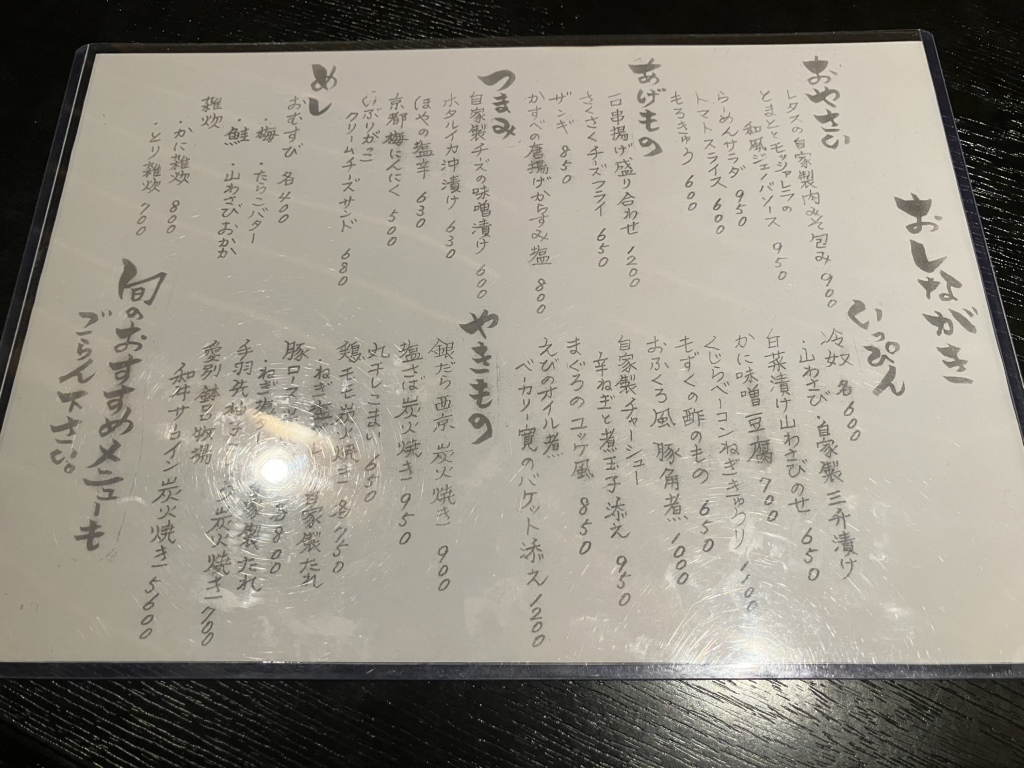 おしながき
おやさい
レタスの自家製肉みそ包み 900
とまとともモッツァレラの
和風ジェノバソース 950
らーめんサラダ 950
トマトスライス 600
もろきゅう 600
あげもの
一口串揚げ盛り合わせ 1200
さくさくチーズフライ 650
ザンギ 850
かすべの唐揚げからすみ塩 800
つまみ
自家製チーズの味噌漬け 600
ホタルイカ沖漬け 630
ほやの塩辛 630
京都梅にんにく 500
いぶりがっこ
クリームチーズサンド 680
めし
おむすび 各400
・梅 ・たらこバター
・鮭 ・山わさびおかか
雑炊
・かに雑炊 800
・とり雑炊 700
いっぴん
冷奴 各600
・山わさび・自家製三升漬け
白菜漬け山わさびのせ 650
かに味噌豆腐 700
くじらベーコンねぎきゅうり 1100
もずくの酢のもの 650
おふくろ風 豚角煮 1000
自家製チャーシュー
辛ねぎと煮玉子添え 950
まぐろのユッケ風 850
えびのオイル煮
ベーカリー寛のバケット添え 1200
やきもの
銀だら西京炭火焼き 900
塩さば炭火焼き 950
丸干しこまい 650
鶏モモ炭火焼き 各750
・ねぎ塩 自家製たれ
豚ロース 800
・ねぎ 家製たれ
手羽先 炭火焼き 700
愛別 鉢呂牧場
和牛サーロイン炭火焼き 5600
旬のおすすめメニューも
ごらん下さい。